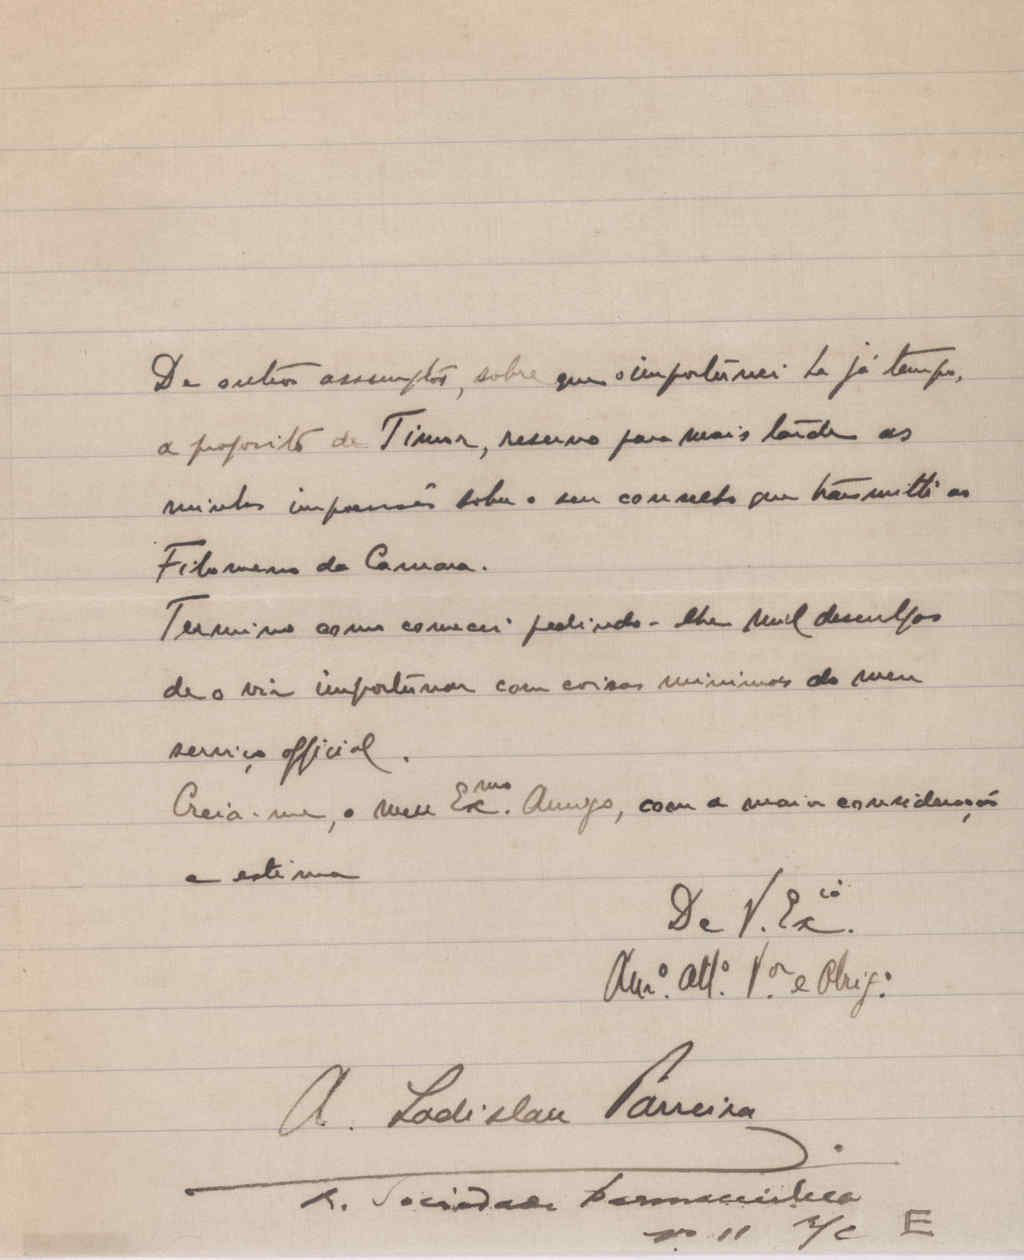 De outros assumptos, sobre que o importunei ha já tempo,
a proposito de Timor, reservo para mais tarde as
minhas impressões sobre o seu que transmitti ao
Filomeno da Camara.
Termino como comecei pedindo-lhe mil desculpas
de o vir importunar com coisas minimas do meu
serviço official.
Creia-me, o meu Exmo. Amigo, com a maior consideração
e estima
De V. Excia.
Amo. Atto. Vor. e Obrigo.
A. Ladislau Parreira
R. Sociedade Farmaceutica
no 11 r/c E